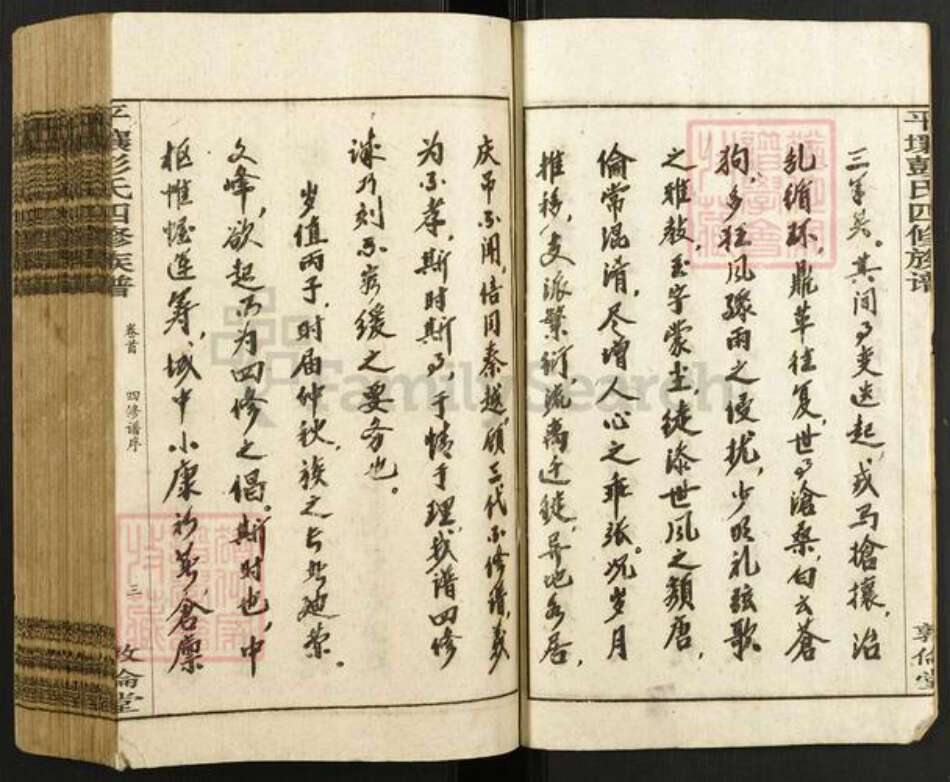 平壤彭氏四修族谱
三年矣。其间了变迭起，戎马抢攘，治
乱循环，鼎革往复，世事沧桑，白云苍
狗，多狂风骤雨之侵扰，少明礼弦歌
之雅教，玉字蒙尘，徒添世风之颓唐，
伦常混淆，尽增人心之乖张。况岁月
推移，支派繁衍，流离迁徙，异地各居，
敦伦堂
庆吊不闻，倍同秦越，顾三代不修谱，义
为不孝，斯时斯事，于情于理，我谱四修
诚乃刻不容缓之要务也。
岁值丙子，时届仲秋，族之长
文峰，欲起而为四修之倡。斯时也，中
枢帷幄运筹，域中小康初萌，仓廪
平壤彭氏四修族谱
卷首
四修谱序
三
敦伦堂
FamilySearch